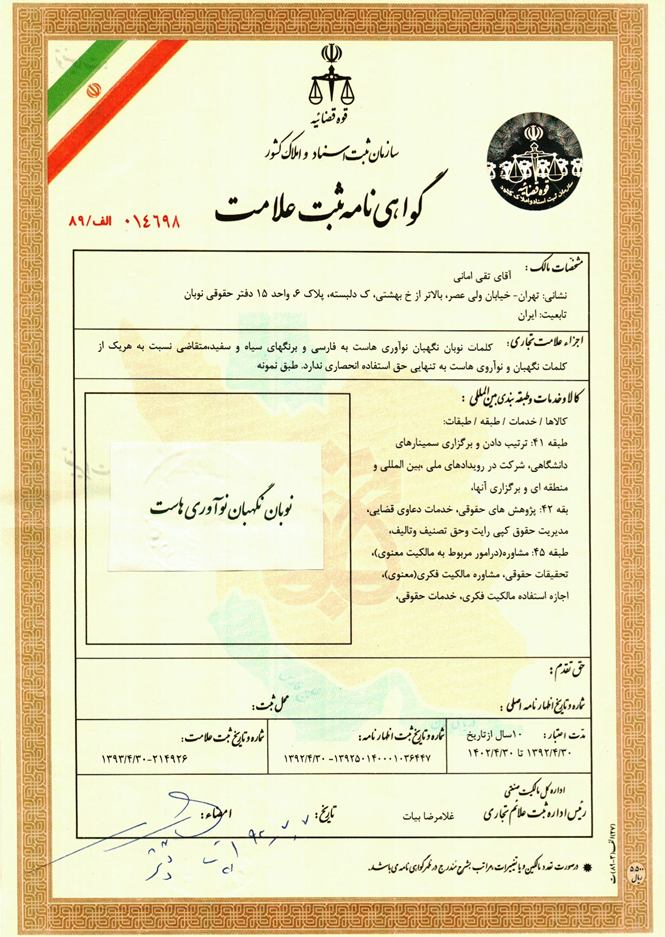 قوه قضائیه
سازمان ثبت اسناد و املاک کشور
قوه قضائیه
سازمان ثبت اسناد و املاک کشور
گواهی نامه ثبت علامت
۰۱۴۶۹۸ الف/۸۹
مشخصات مالک: آقای تقی امانی
نشانی: تهران- خیابان ولی عصر، بالاتر از خ بهشتی، ک دلبسته، پلاک ۶، واحد ۱۵ دفتر حقوقی نوبان
تابعیت: ایران
اجزاء علامت تجاری: کلمات نوبان نگهبان نوآوری هاست به فارسی و برنگهای سیاه و سفید،متقاضی نسبت به هریک از
کلمات نگهبان و نوآروی هاست به تنهایی حق استفاده انحصاری ندارد. طبق نمونه
کالا و خدمات و طبقه بندی بین المللی :
کالاها / خدمات / طبقه / طبقات:
طبقه ۴۱: ترتیب دادن و برگزاری سمینارهای
دانشگاهی، شرکت در رویدادهای ملی ،بین المللی و
منطقه ای و برگزاری آنها،
بقه ۴۲: پژوهش های حقوقی، خدمات دعاوی قضایی،
مدیریت حقوق کپی رایت وحق تصنیف وتالیف،
طبقه ۴۵: مشاوره(درامور مربوط به مالکیت معنوی)،
تحقیقات حقوقی، مشاوره مالکیت فکری(معنوی)،
اجازه استفاده مالکیت فکری، خدمات حقوقی،
نوبان نگهبان نوآوری هاست
حق تقدم :
شماره و تاریخ اظهار نامه اصلی : محل ثبت:
مدت اعتبار : ۱۰سال ازتاریخ
۱۳۹۲/۴/۳۰ تا ۱۴۰۲/۴/۳۰
شماره و تاریخ ثبت اظهار نامه:
۱۳۹۲۵۰۱۴۰۰۰۱۰۳۶۴۴۷-۱۳۹۲/۴/۳۰
شماره و تاریخ ثبت علامت:
۲۱۴۹۲۶-۱۳۹۳/۴/۳۰
اداره کل مالکیت صنعتی
رئیس اداره ثبت علائم تجاری غلامرضا بیات تاریخ: امضاء:
درصورت تعدد مالکین و یا تغییرات، مراتب بشرح مندرج در ظهر گواهی نامه می باشد.
۵۵۰۰ ریال